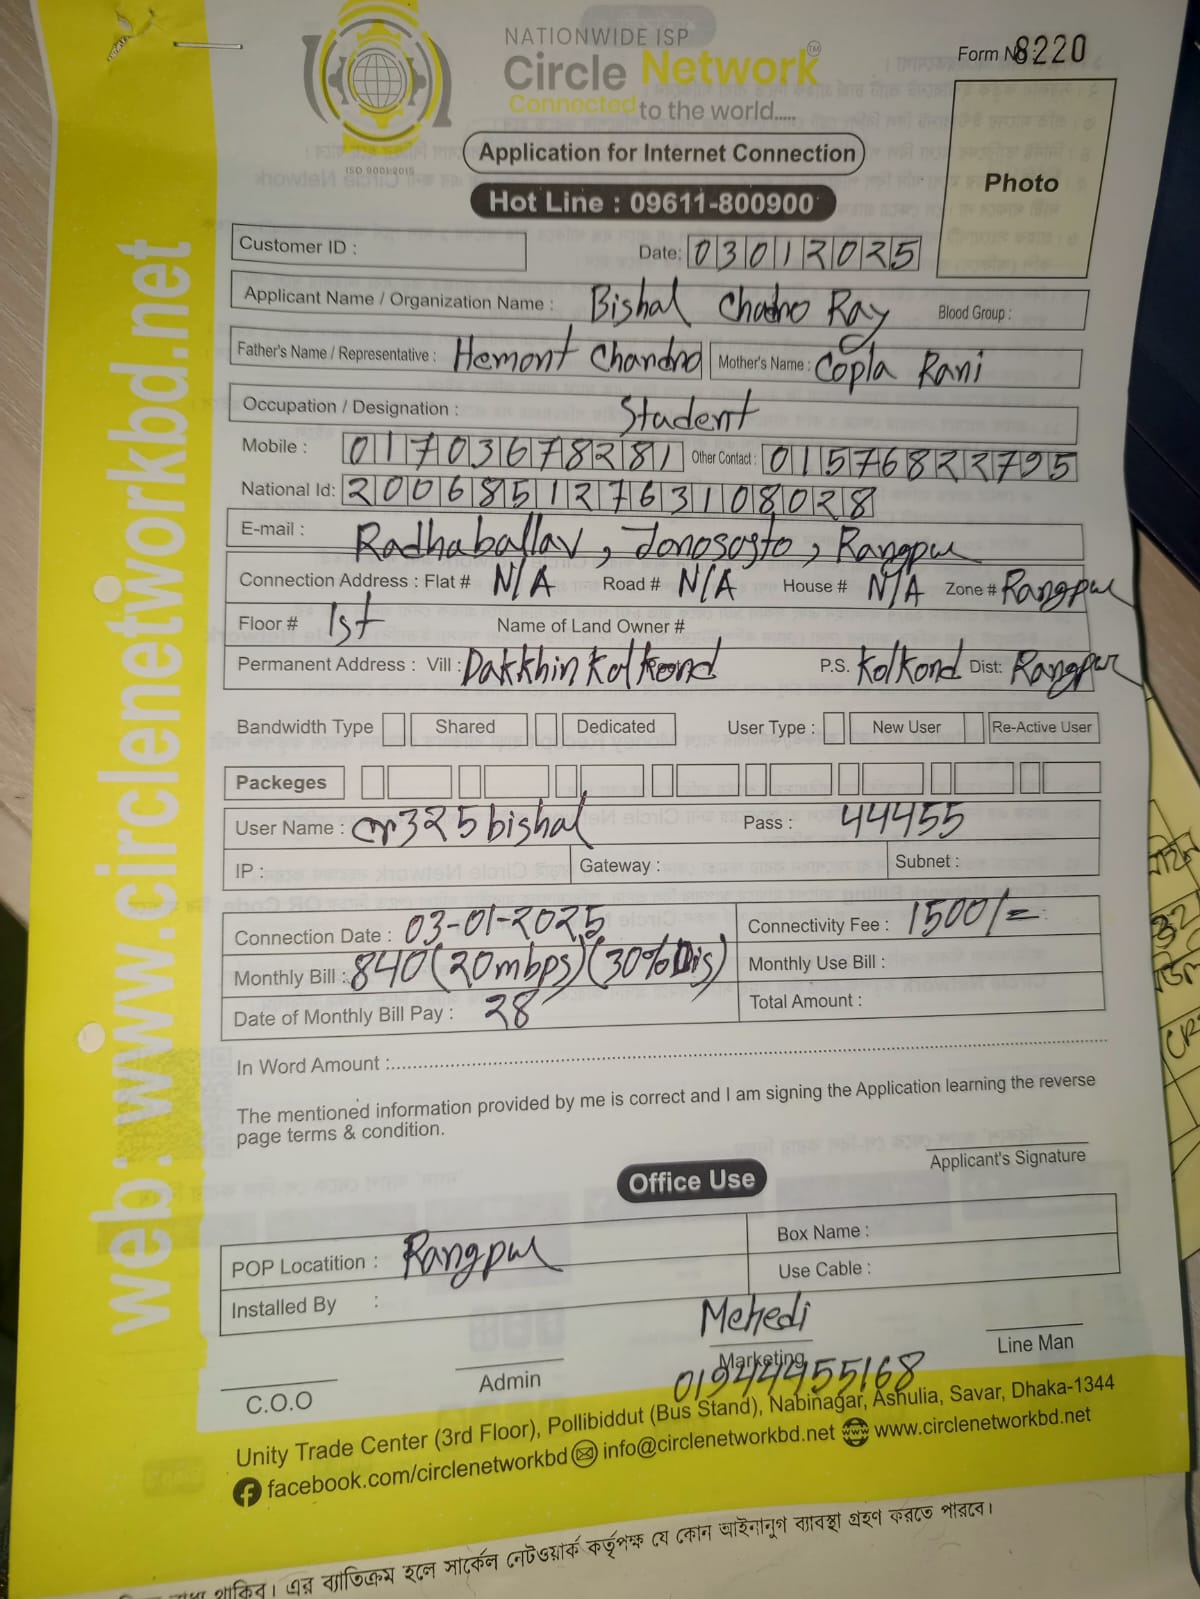 NATIONWIDE ISP
Circle Network™
Connected to the world.....
ISO 9001:2015
Form No 8220
Application for Internet Connection
Photo
Hot Line : 09611-800900
Customer ID :
Date: 03012025
Applicant Name / Organization Name : Bishal Chadno Ray Blood Group :
Father's Name / Representative : Hemont Chandro Mother's Name : Copla Rani
Occupation / Designation : Student
Mobile : 01703678281 Other Contact : 01576822795
National Id: 20068512763108028
E-mail : Radhaballav, Jonosogto, Rangpur
Connection Address : Flat # N/A Road # N/A House # N/A Zone # Rangpur
Floor # 1st Name of Land Owner #
Permanent Address : Vill : Dakkhin Kolkond P.S. Kolkond Dist: Rangpur
Bandwidth Type Shared Dedicated User Type : New User Re-Active User
Packeges
User Name : cnr325bishal Pass : 44455
IP : Gateway : Subnet :
Connection Date : 03-01-2025 Connectivity Fee : 1500/=
Monthly Bill : 840 (20mbps) (30% Dis) Monthly Use Bill :
Date of Monthly Bill Pay : 28 Total Amount :
In Word Amount :
The mentioned information provided by me is correct and I am signing the Application learning the reverse
page terms & condition.
Applicant's Signature
Office Use
POP Locatition : Rangpur Box Name :
Use Cable :
Installed By :
Mehedi
C.O.O Admin Marketing Line Man
01944455168
Unity Trade Center (3rd Floor), Pollibiddut (Bus Stand), Nabinagar, Ashulia, Savar, Dhaka-1344
facebook.com/circlenetworkbd info@circlenetworkbd.net www.circlenetworkbd.net
web: www.circlenetworkbd.net
থাকিব। এর ব্যতিক্রম হলে সার্কেল নেটওয়ার্ক কর্তৃপক্ষ যে কোন আইনানুগ ব্যবস্থা গ্রহণ করতে পারবে।